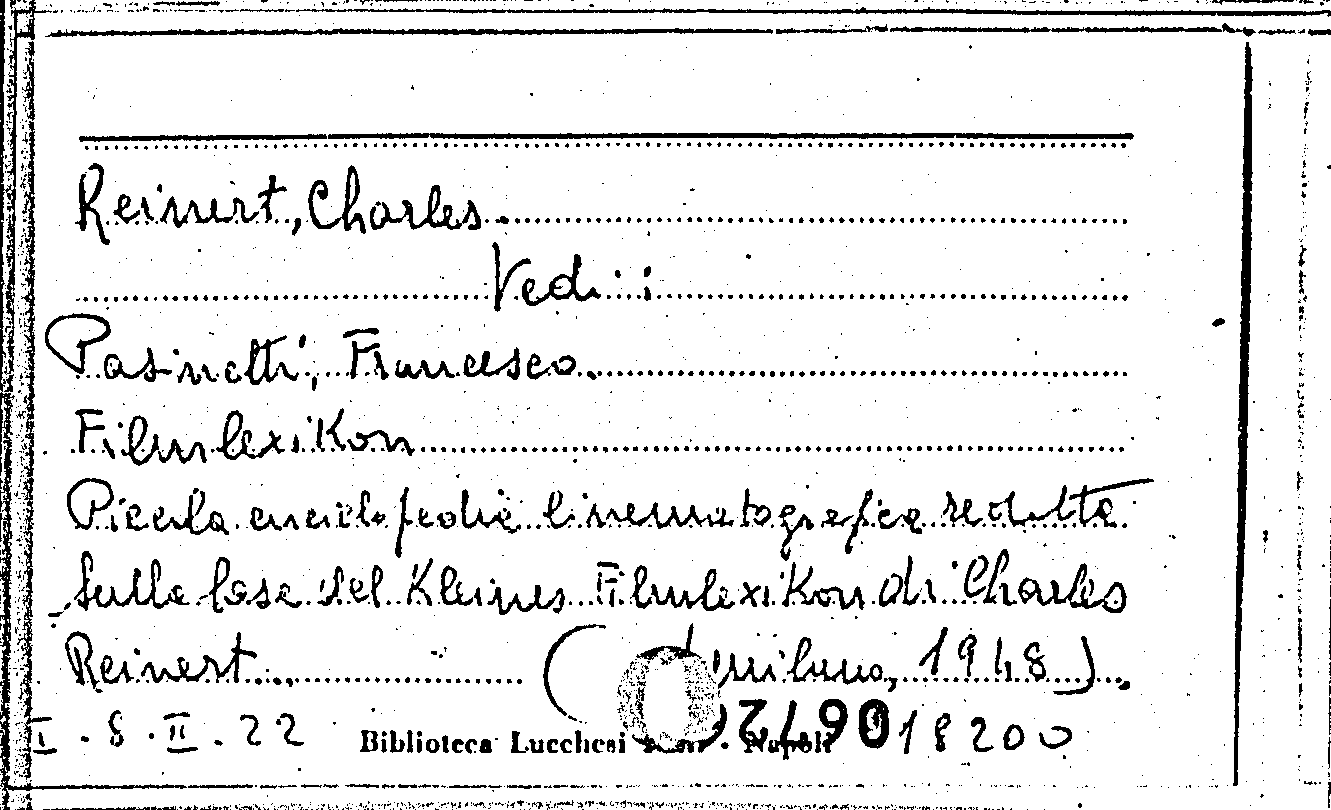 Reinert, Charles.
Vedi:
Pasinetti, Francesco.
Filmlexikon
Piccola enciclopedia cinematografica redatta
sulla base del Kleines Filmlexikon di Charles
Reinert.
(Milano, 1948).
I. 8. II. 22
Biblioteca Lucchesi - Napoli
18200